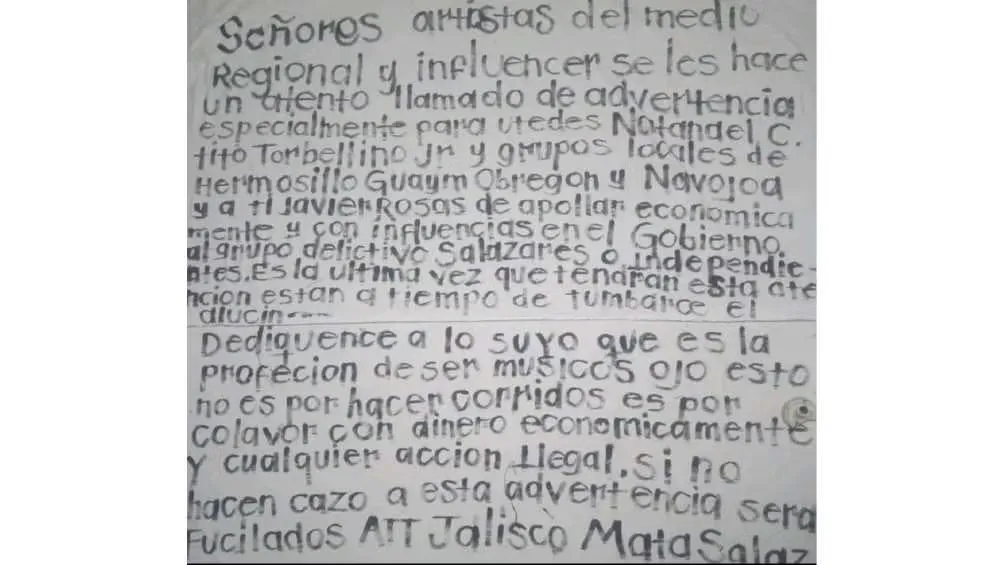 Señores artistas del medio
Regional y influencer se les hace
un atento llamado de advertencia
especialmente para utedes Natandel C.
tito Torbellino Jr y grupos locales de
Hermosillo Guaym Obregon y Navojoa
y a ti Javier Rosas de apollar economica
mente y con influencias en el Gobierno.
al grupo delictivo Salazares o independie-
ntes. Es la ultima vez que tendran esta ate
ncion estan a tiempo de tumbarce el
alucin----
Dediquence a lo suyo que es la
profecion de ser musicos ojo esto
no es por hacer corridos es por
colavor con dinero economicamente
y cualquier accion Ilegal. si no
hacen cazo a esta advertencia sera
Fucilados ATT Jalisco Mata Salaz